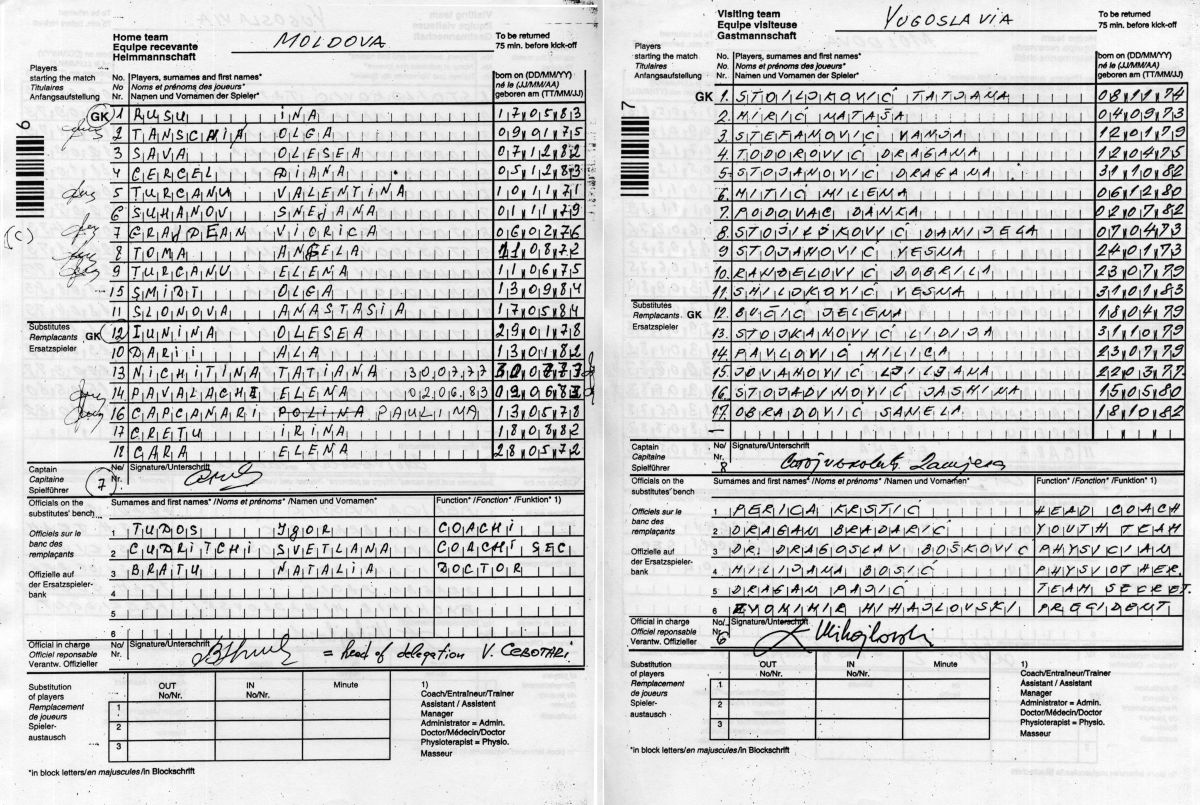 Home team
Equipe recevante
Heimmannschaft
MOLDOVA
To be returned
75 min. before kick-off
Players
starting the match
Titulaires
Anfangsaufstellung
No. Players, surnames and first names*
No Noms et prénoms des joueurs*
Nr. Namen und Vornamen der Spieler*
born on (DD/MM/YY)
né le (JJ/MM/AA)
geboren am (TT/MM/JJ)
6
GK 1 RUSU INA 170583
2 TANSCAIA OLGA 090175
3 SAVA OLESEA 071282
4 CERCEL DIANA 051283
5 TURCANU VALENTINA 101171
6 SUHANOV SNEJANA 011179
(C) 7 GRAJDEAN VIORICA 060276
8 TOMA ANGELA 110872
9 TURCANU ELENA 110675
15 SMIDT OLGA 130984
11 SLONOVA ANASTASIA 170584
Substitutes
Remplaçants
Ersatzspieler
GK 12 IUNINA OLESEA 290178
10 DARII ALA 130182
13 NICHITINA TATIANA 300777
14 PAVALACHI ELENA 020683
16 CAPCANARI POLINA PAULINA 130578
17 CRETU IRINA 180882
18 CARA ELENA 280572
Captain
Capitaine
Spielführer
No/
Nr.
7
Signature/Unterschrift
Officials on the
substitutes' bench
Surnames and first names* /Noms et prénoms* /Namen und Vornamen*
Function* /Fonction* /Funktion* 1)
Officiels sur le
banc des
remplaçants
Offizielle auf
der Ersatzspieler-
bank
1 TUDOS IGOR COACHI
2 CUDRITCHI SVETLANA COACHI SEC
3 BRATU NATALIA DOCTOR
4
5
6
Official in charge
Officiel reponsable
Verantw. Offizieller
No/
Nr.
Signature/Unterschrift
= head of delegation V. CEBOTARI
Substitution
of players
Remplacement
de joueurs
Spieler-
austausch
OUT
No/Nr.
IN
No/Nr.
Minute
1
2
3
1)
Coach/Entraîneur/Trainer
Assistant / Assistent
Manager
Administrator = Admin.
Doctor/Médecin/Doctor
Physioterapist = Physio.
Masseur
*in block letters/en majuscules/in Blockschrift
Visiting team
Equipe visiteuse
Gastmannschaft
YUGOSLAVIA
To be returned
75 min. before kick-off
Players
starting the match
Titulaires
Anfangsaufstellung
No. Players, surnames and first names*
No Noms et prénoms des joueurs*
Nr. Namen und Vornamen der Spieler*
born on (DD/MM/YY)
né le (JJ/MM/AA)
geboren am (TT/MM/JJ)
7
GK 1. STOILJKOVIĆ TATJANA 081174
2. MIRIC NATAŠA 040973
3. STEFANOVIĆ VANJA 120179
4. TODOROVIĆ DRAGANA 120475
5. STOJANOVIĆ DRAGANA 311082
6. MITIĆ MILENA 061280
7. PODOVAC DANKA 020782
8. STOJILJKOVIĆ DANIJELA 070473
9 STOJANOVIĆ VESNA 240173
10. RANDELOVIĆ DOBRILA 230779
11. SMILJKOVIĆ VESNA 310183
Substitutes
Remplaçants
Ersatzspieler
GK 12. BUČIĆ JELENA 180479
13. STOJKANOVIĆ LIDIJA 311079
14. PAVLOVIĆ MILICA 230779
15. JOVANOVIĆ LJILJANA 220377
16. STOJADINOVIĆ JASMINA 150580
17. OBRADOVIĆ SANELA 181082
Captain
Capitaine
Spielführer
No/
Nr.
8
Signature/Unterschrift
Officials on the
substitutes' bench
Surnames and first names* /Noms et prénoms* /Namen und Vornamen*
Function* /Fonction* /Funktion* 1)
Officiels sur le
banc des
remplaçants
Offizielle auf
der Ersatzspieler-
bank
1 PERICA KRSTIC HEAD COACH
2 DRAGAN BRADARIĆ YOUTH TEAM
3 DR. DRAGOSLAV BOŠKOVIĆ PHYSYCIAN
4 MILIJANA BOSIĆ PHYSYOTHER.
5 DRAGAN PAJIĆ TEAM SECRET.
6 ZVONIMIR MIHAJLOVSKI PRECIDENT
Official in charge
Officiel reponsable
Verantw. Offizieller
No/
Nr.
6
Signature/Unterschrift
Z Mihajlovski
Substitution
of players
Remplacement
de joueurs
Spieler-
austausch
OUT
No/Nr.
IN
No/Nr.
Minute
1
2
3
1)
Coach/Entraîneur/Trainer
Assistant / Assistant
Manager
Administrator = Admin.
Doctor/Médecin/Doctor
Physioterapist = Physio.
Masseur
*in block letters/en majuscules/in Blockschrift